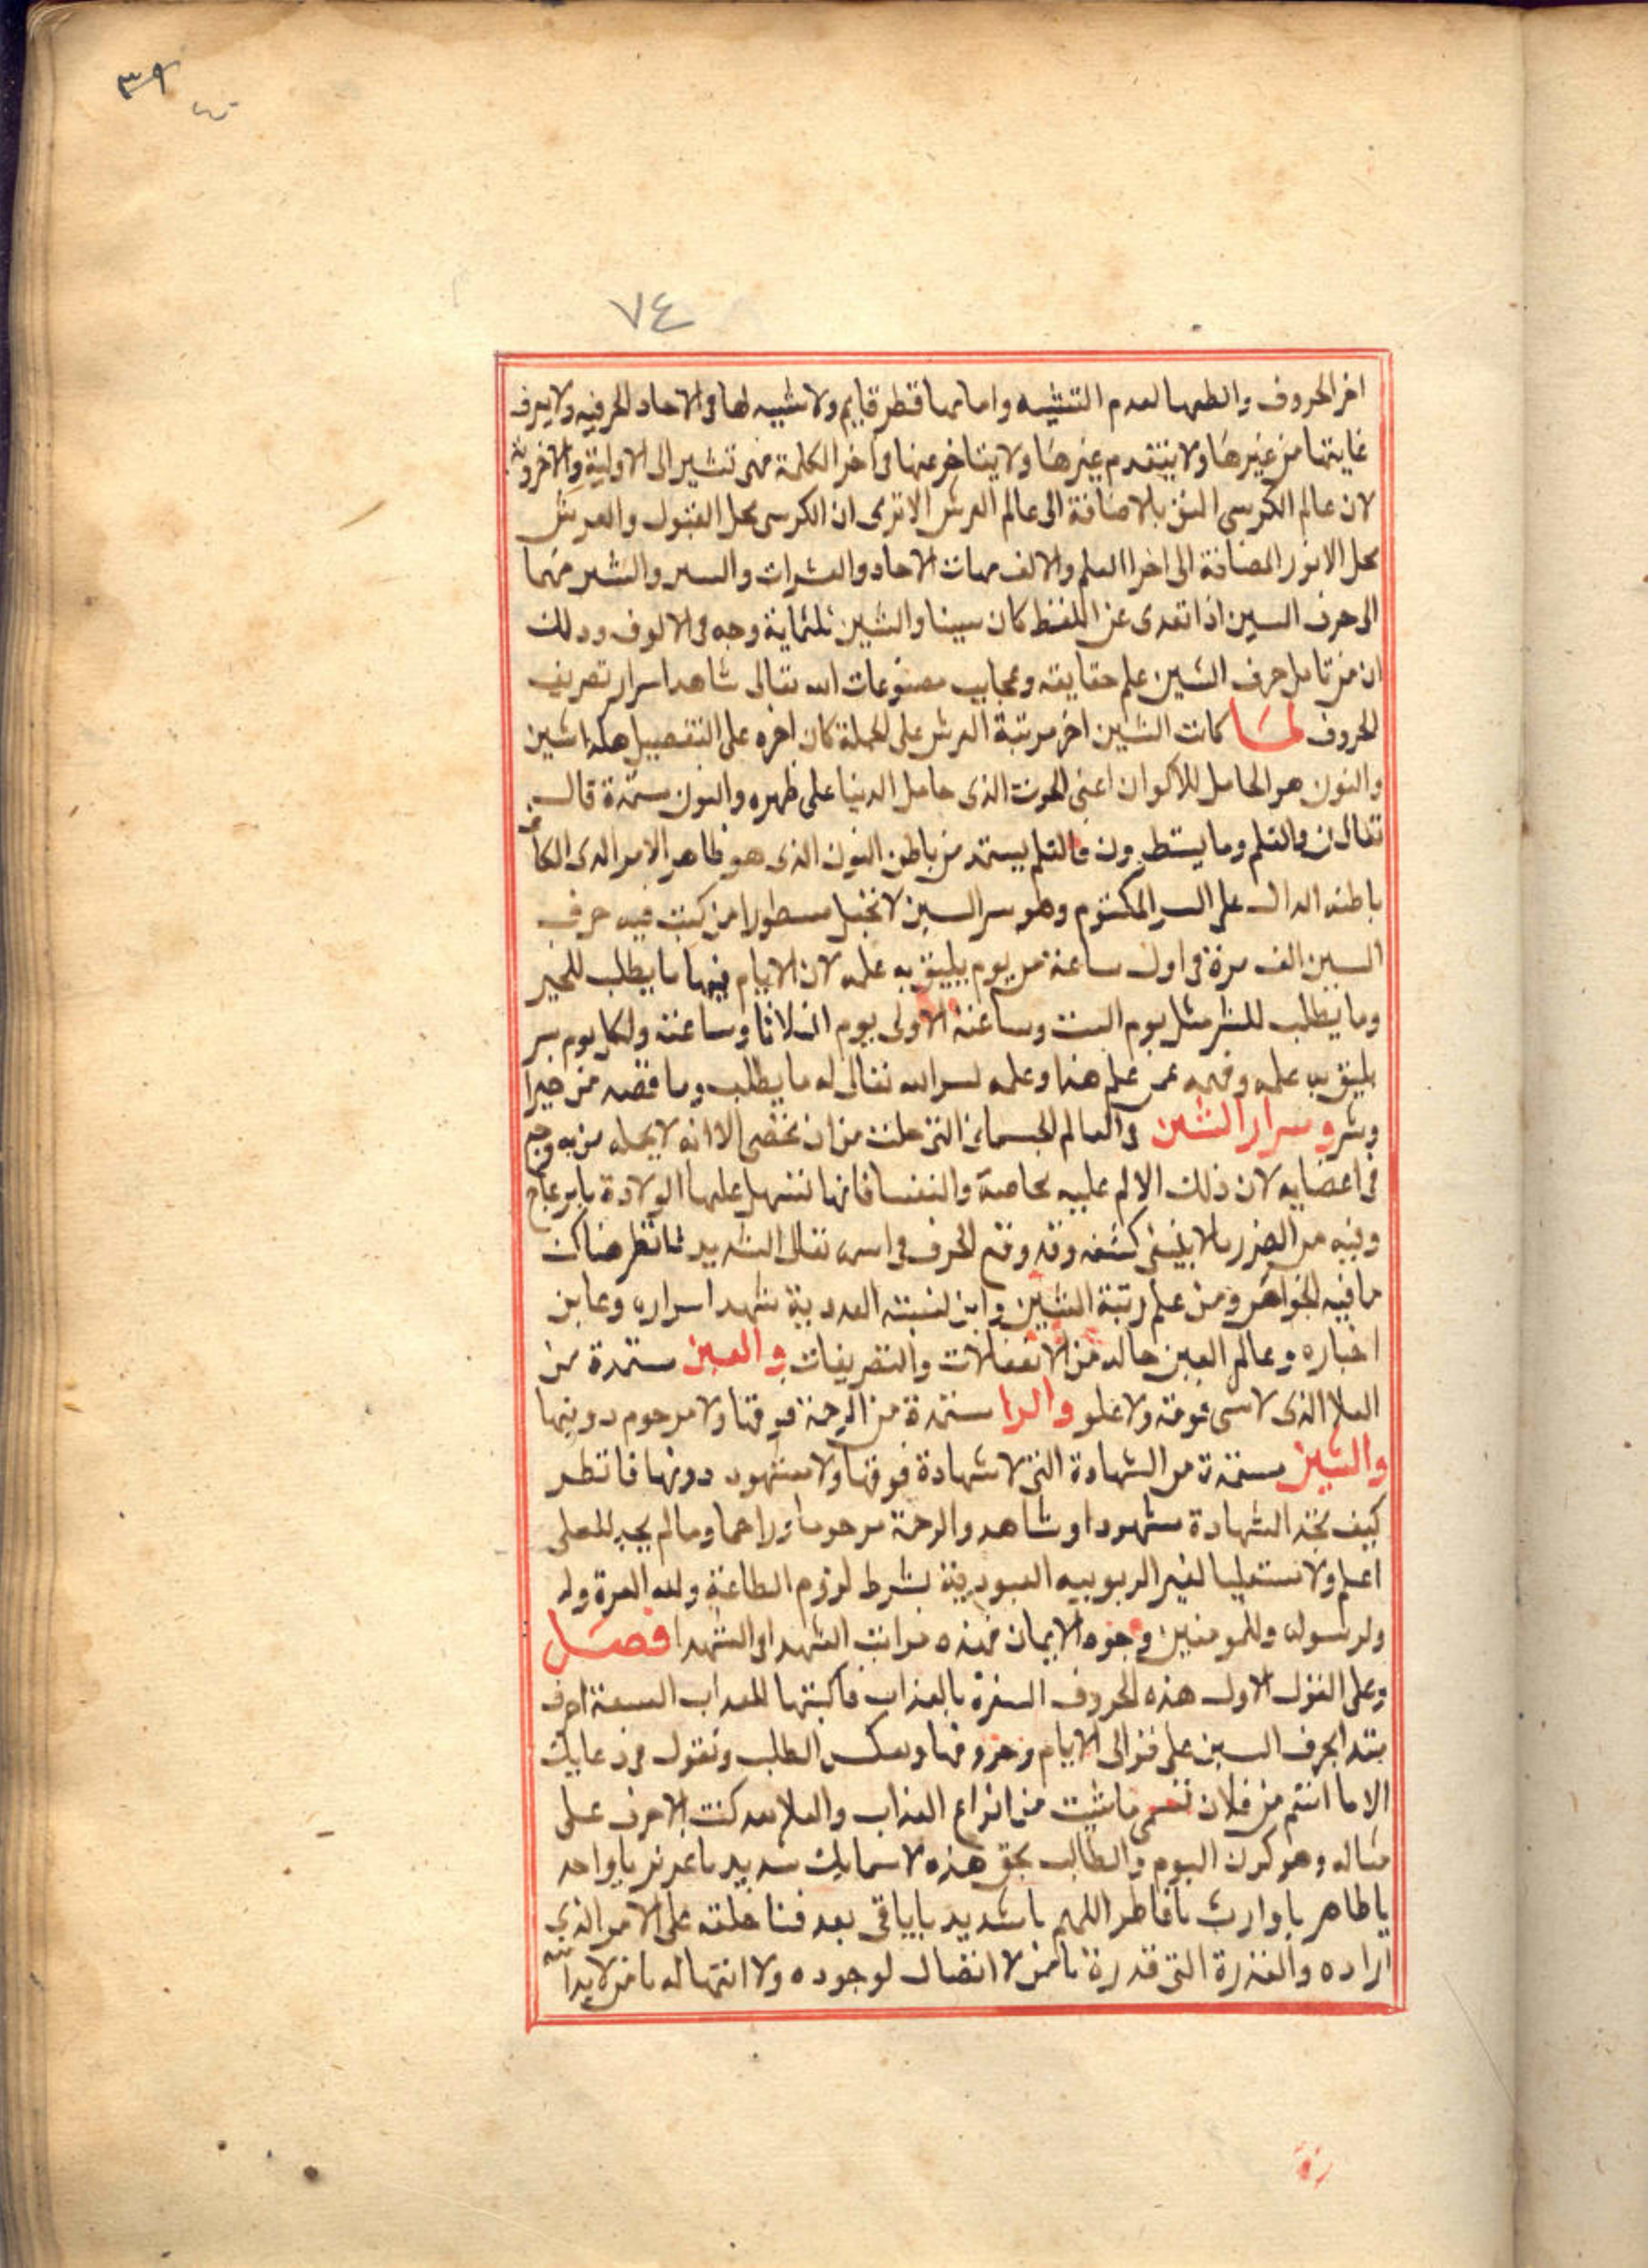 ٣٩
٧٤
اخر الحروف والطفها لعدم التشبيه واما مها قطر قايم ولا شبيه لها فى الاحاد الحرفيه ولا يعرف
غايتها من غيرها ولا يتقدم غيرها ولا يتاخر عنها فى اخر الكلمة فهى تشير الى الاولية والاخروية
لان عالم الكرسى بالاضافة الى عالم العرش الا ترى ان الكرسى محل القبول والعرش
محل الانور المضافة الى اخر العلم والالف مهات الاحاد والعشرات والسر والشين مهما
الى حرف السين اذا تعدى عن اللفظ كان سينا والشين ثلثماية وجه فى الالوف وذلك
ان من تامل حرف الشين علم حقايقه وعجايب مصنوعات الله تعالى شاهد اسرار تصريف
الحروف لما كانت الشين اخر مرتبة العرش على الجملة كان اخره على التفصيل هكذا شين
والنون هو الحامل للاكوان اعنى الحوت الذى حامل الدنيا على ظهره والنون ستمدة قال
تعالى ن والقلم وما يسطرون فالقلم يستمد من باطن النون الذى هو ظاهر الامر الذى
باطنه الدال على السر المكتوم وهو سر السين مسطورا من كتب فيه حرف
السين الف مرة فى اول ساعة من يوم يليق به علمه لان الايام فيها ما يطلب للخير
وما يطلب للشر مثل يوم السبت وساعته الاولى يوم الثلاثا وساعته ولكل يوم سر
يليق به علمه وفهمه فمن علم هذا وعلمه يسر الله تعالى له ما يطلب وما قصد من خيرا
وشر وسرار الشين فى العالم الجسمانى التى جلت من ان تحصى الا انه لا يحمله من به وجع
فى اعضايه لان ذلك الالم عليه بخاصة والنفسا فانها تسهل عليها الولادة بامر عجاج
وفيه من الضرر ما لا ينبغى كشفه وقد وقع الحرف فى اسمه تعالى الشديد فانظر هناك
ما فيه الجواهر ومن علم رتبة الشين واين نسبته العددية شهد اسراره وعاين
اخباره وعالم العين حاله من الانفعالات والتصريفات والعين ستمدة من
العلا الذى لا شى فوقه ولا علو والرا ستمدة من الرحمة فوقها ولا مرحوم دونها
والشين مستمدة من الشهادة التى لا شهادة فوقها ولا مشهود دونها فانظر
كيف تجد الشهادة مشهودا وشاهد والرحمة مرحوما وراحما ومالم يجد للمعلى
اعلم ولا مستعليا لغير الربوبيه العبودية بشرط لزوم الطاعة ولله العزة وله
ولرسوله وللمومنين وجوه الايمان فهذه مراتب الشهد او الشهدا فصل
وعلى القول الاول هذه الحروف بالعذاب فاكتبها للعذاب السبعة احرف
بتدا بحرف السين على توالى الايام وحروفها وبعكس الطلب وتقول فى دعايك
الا ما انتم من فلان ماشيت من انواع العذاب والعلا بعد كتب الاحرف على
مثاله وهو كون اليوم والطالب بحق هذه الاسمايك شديد يا عزيز يا واحد
يا ظاهر يا وارث يا فاطر اللهم يا شديد يا باقى بعد فنا خلقه على الامر الذى
اراده والقدرة التى قدرة يا من لا انفصال لوجوده ولا انتها له يا من لا بدا